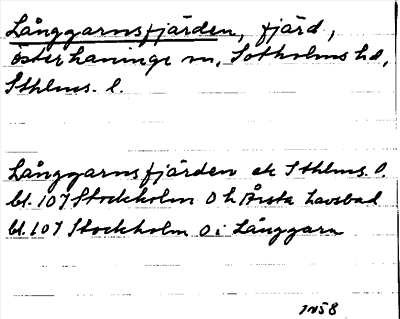 Långgarnsfjärden, fjärd,
Österhaninge sn, Sotholms hd,
Sthlms. l.
Långgarnsfjärden ek Sthlms. l.
bl. 107 Stockholm O h Årsta havsbad
bl. 107 Stockholm O i Långgarn
1958